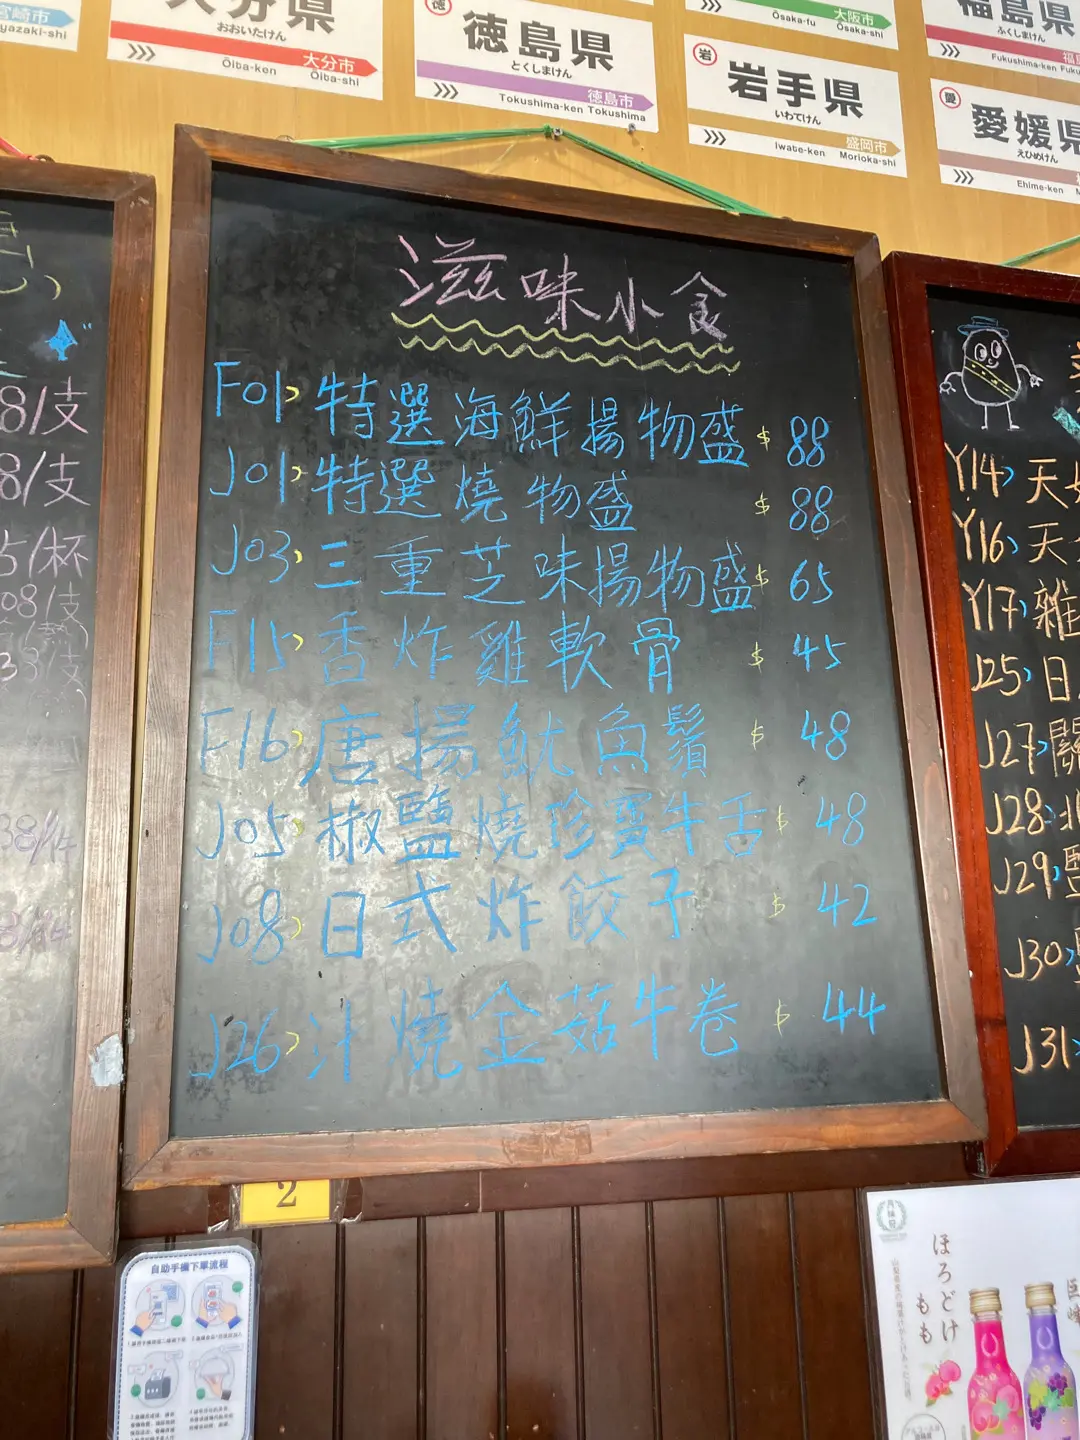 宮崎市
yazaki-shi
大分県
おおいたけん
大分市
Ōita-ken
Ōita-shi
徳
徳島県
とくしまけん
徳島市
Tokushima-ken Tokushima
大阪市
Ōsaka-fu
Ōsaka-shi
岩
岩手県
いわてけん
盛岡市
Iwate-ken
Morioka-shi
福島県
ふくしまけん
Fukushima-ken
愛
愛媛県
えひめけん
Ehime-ken
滋味小食
F01> 特選海鮮揚物盛 $ 88
J01> 特選燒物盛 $ 88
J03> 三重芝味揚物盛 $ 65
F15> 香炸雞軟骨 $ 45
F16> 唐揚魷魚鬚 $ 48
J05> 椒鹽燒珍寶牛舌 $ 48
J08> 日式炸餃子 $ 42
J26> 汁燒金菇牛卷 $ 44
8/支
8/支
5/杯
08/支
38/14
Y14> 天
Y16> 天
Y17> 雜
J25> 日
J27> 關
J28> 北
J29> 鹽
J30>
J31>
2
自助手機下單流程
ほろどけ
もも
巨峰